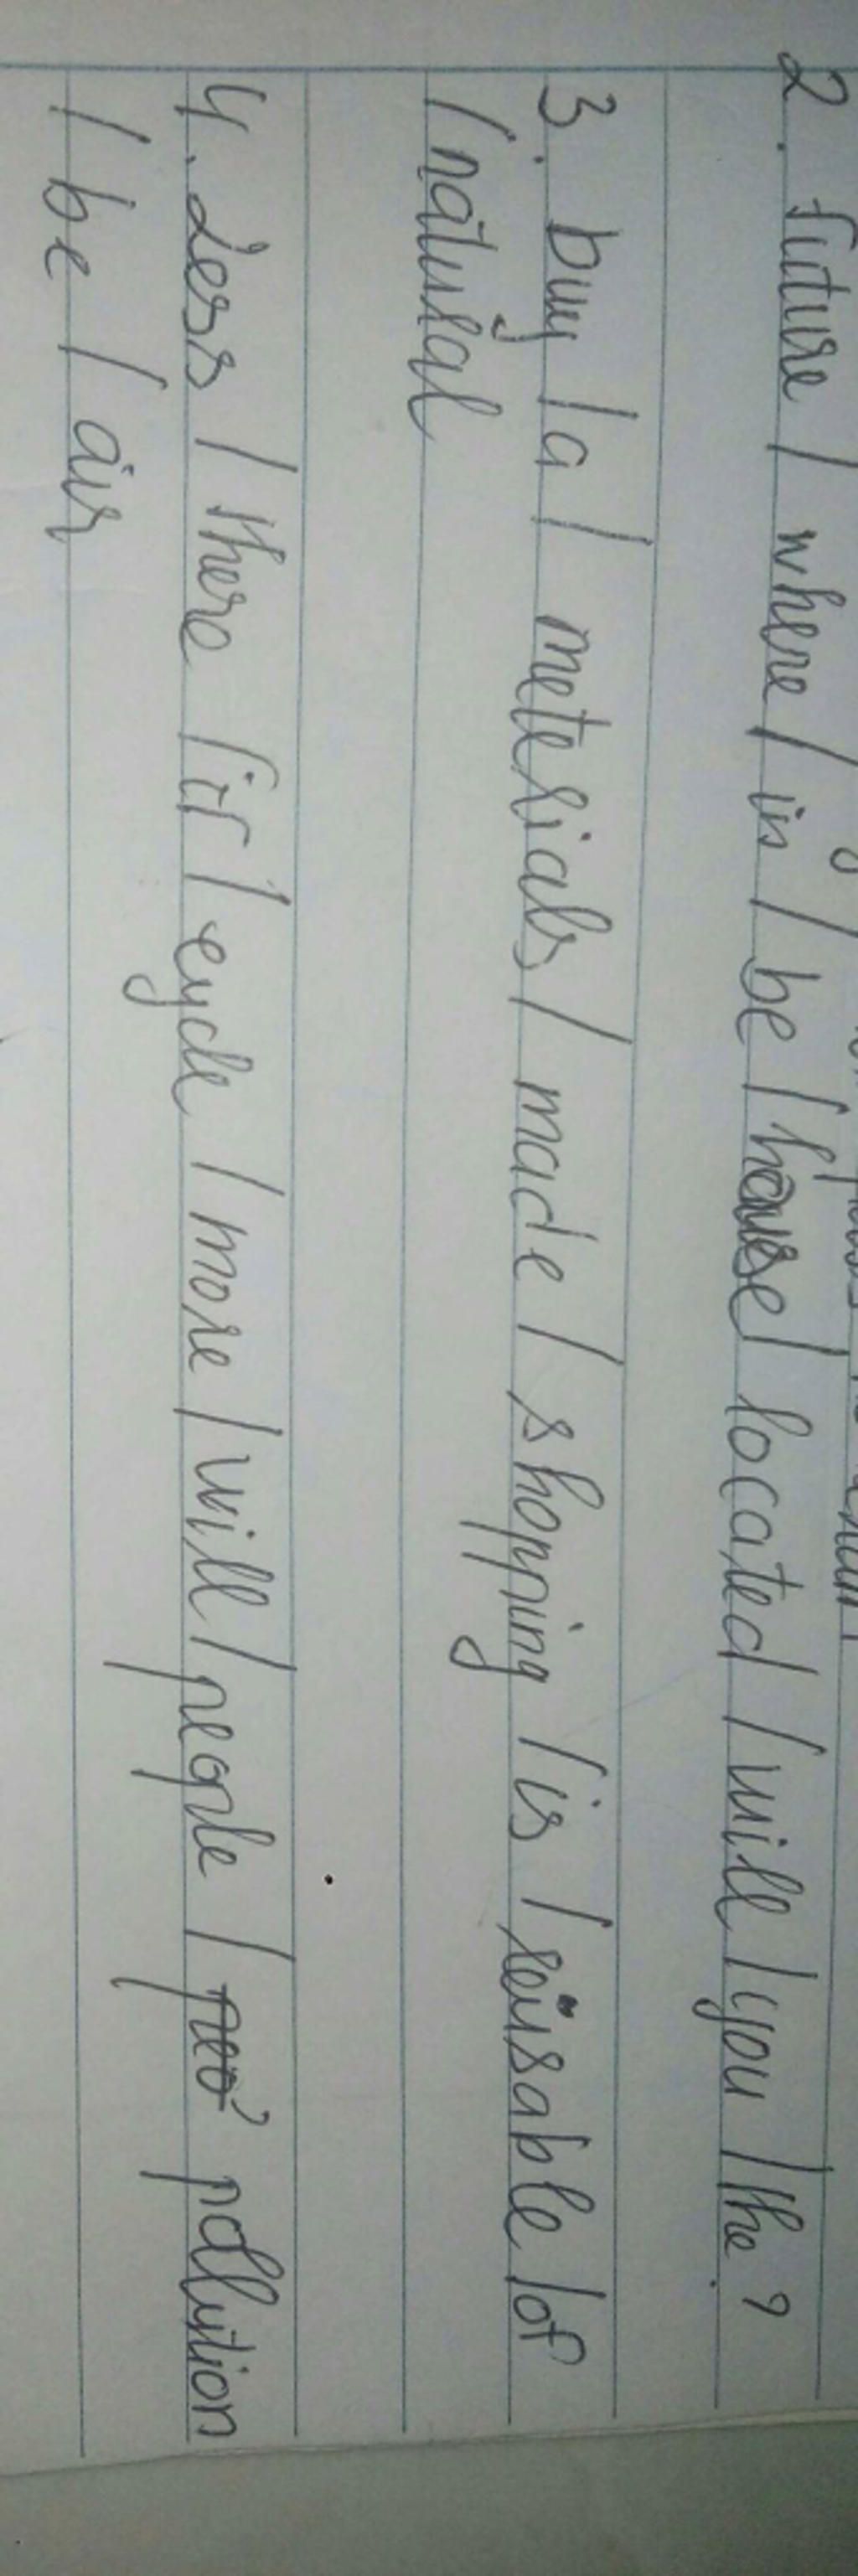 2. future / where / in / be / house / located / will / you / the ?
3. buy / a / meterials / made / shopping / is / reusable / of
/ natural
4. Less / there / if / cycle / more / will / people / pollution
/ be / air